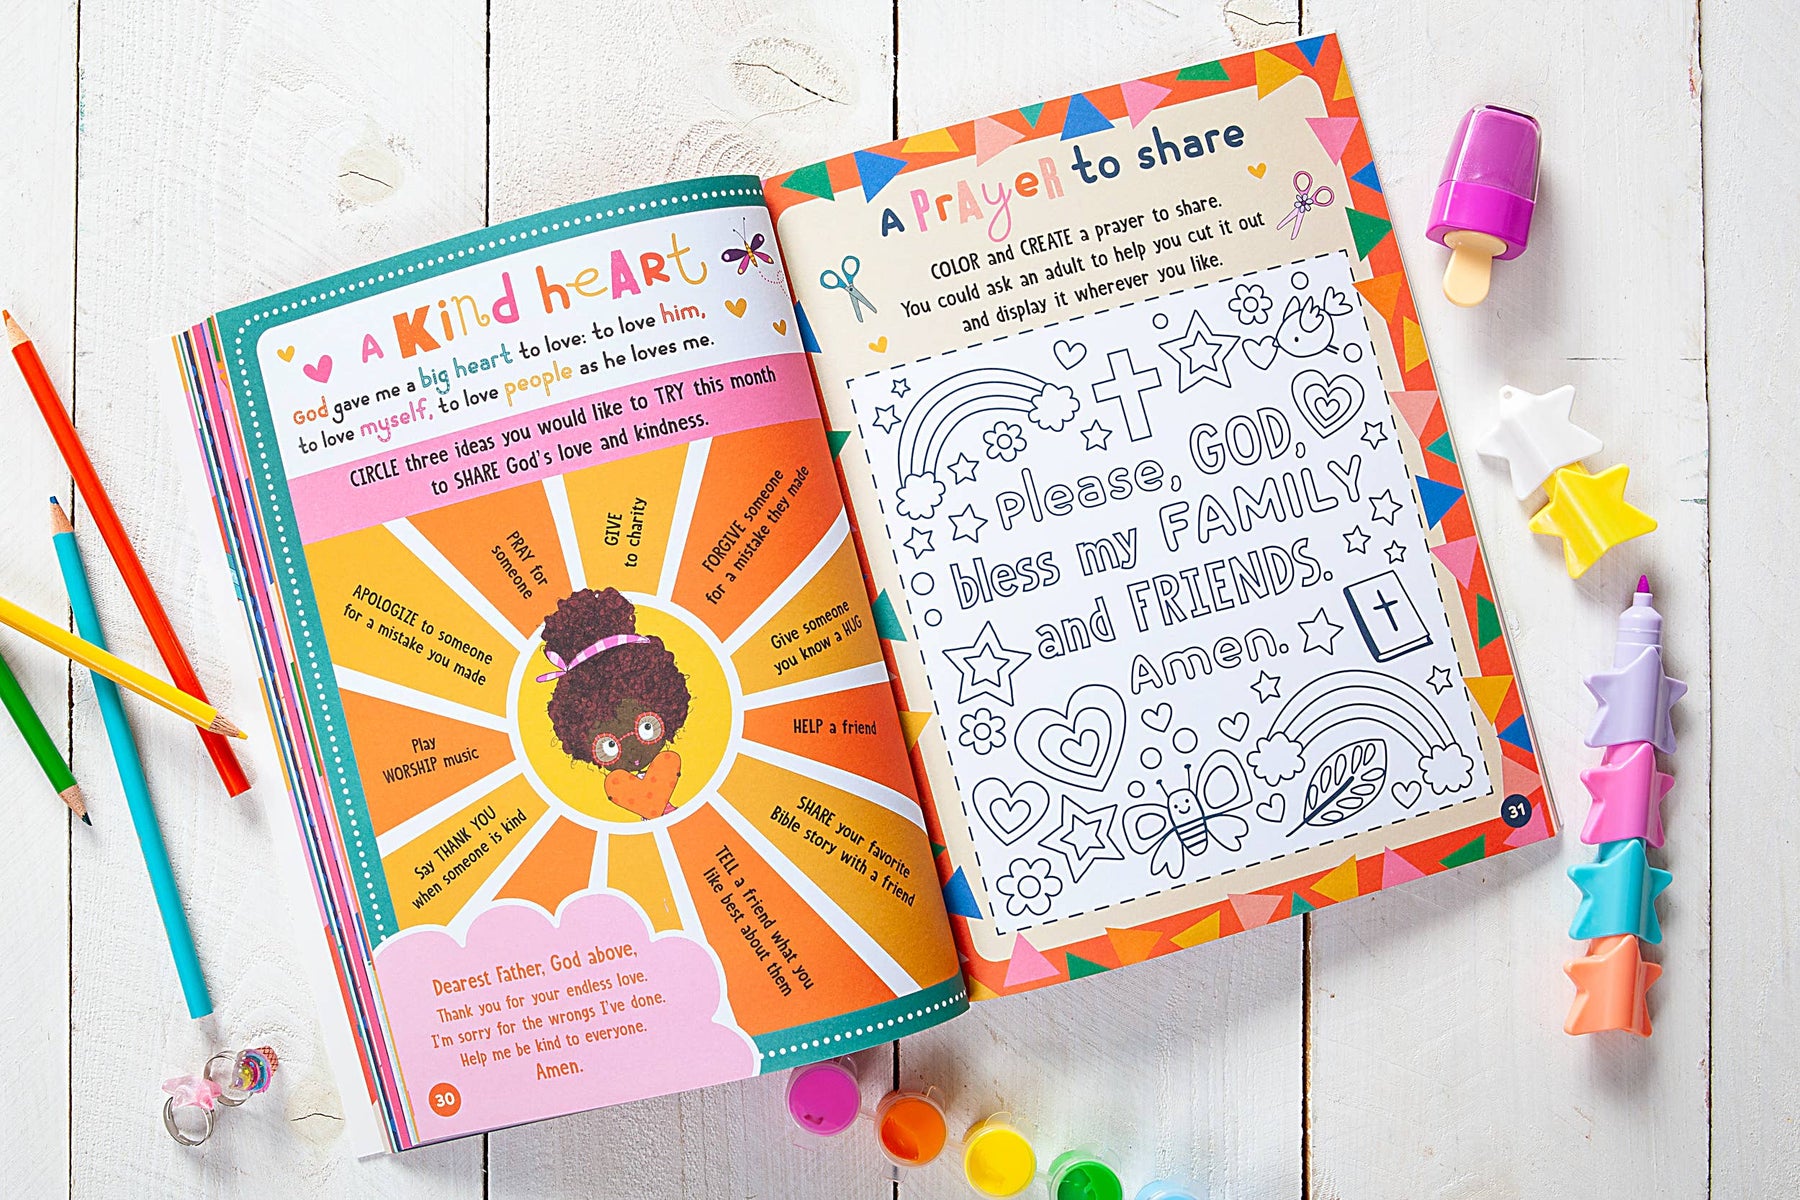 A Kind heART
God gave me a big heart to love: to love him,
to love myself, to love people as he loves me.
CIRCLE three ideas you would like to TRY this month
to SHARE God's love and kindness.
APOLOGIZE to someone
for a mistake you made
PRAY for
someone
GIVE
to charity
FORGIVE someone
for a mistake they made
Give someone
you know a HUG
HELP a friend
SHARE your favorite
Bible story with a friend
TELL a friend what you
like best about them
Say THANK YOU
when someone is kind
Play
WORSHIP music
Dearest Father, God above,
Thank you for your endless love.
I'm sorry for the wrongs I've done.
Help me be kind to everyone.
Amen.
30
A PrAyeR to share
COLOR and CREATE a prayer to share.
You could ask an adult to help you cut it out
and display it wherever you like.
Please, GOD,
bless my FAMILY
and FRIENDS.
Amen.
31